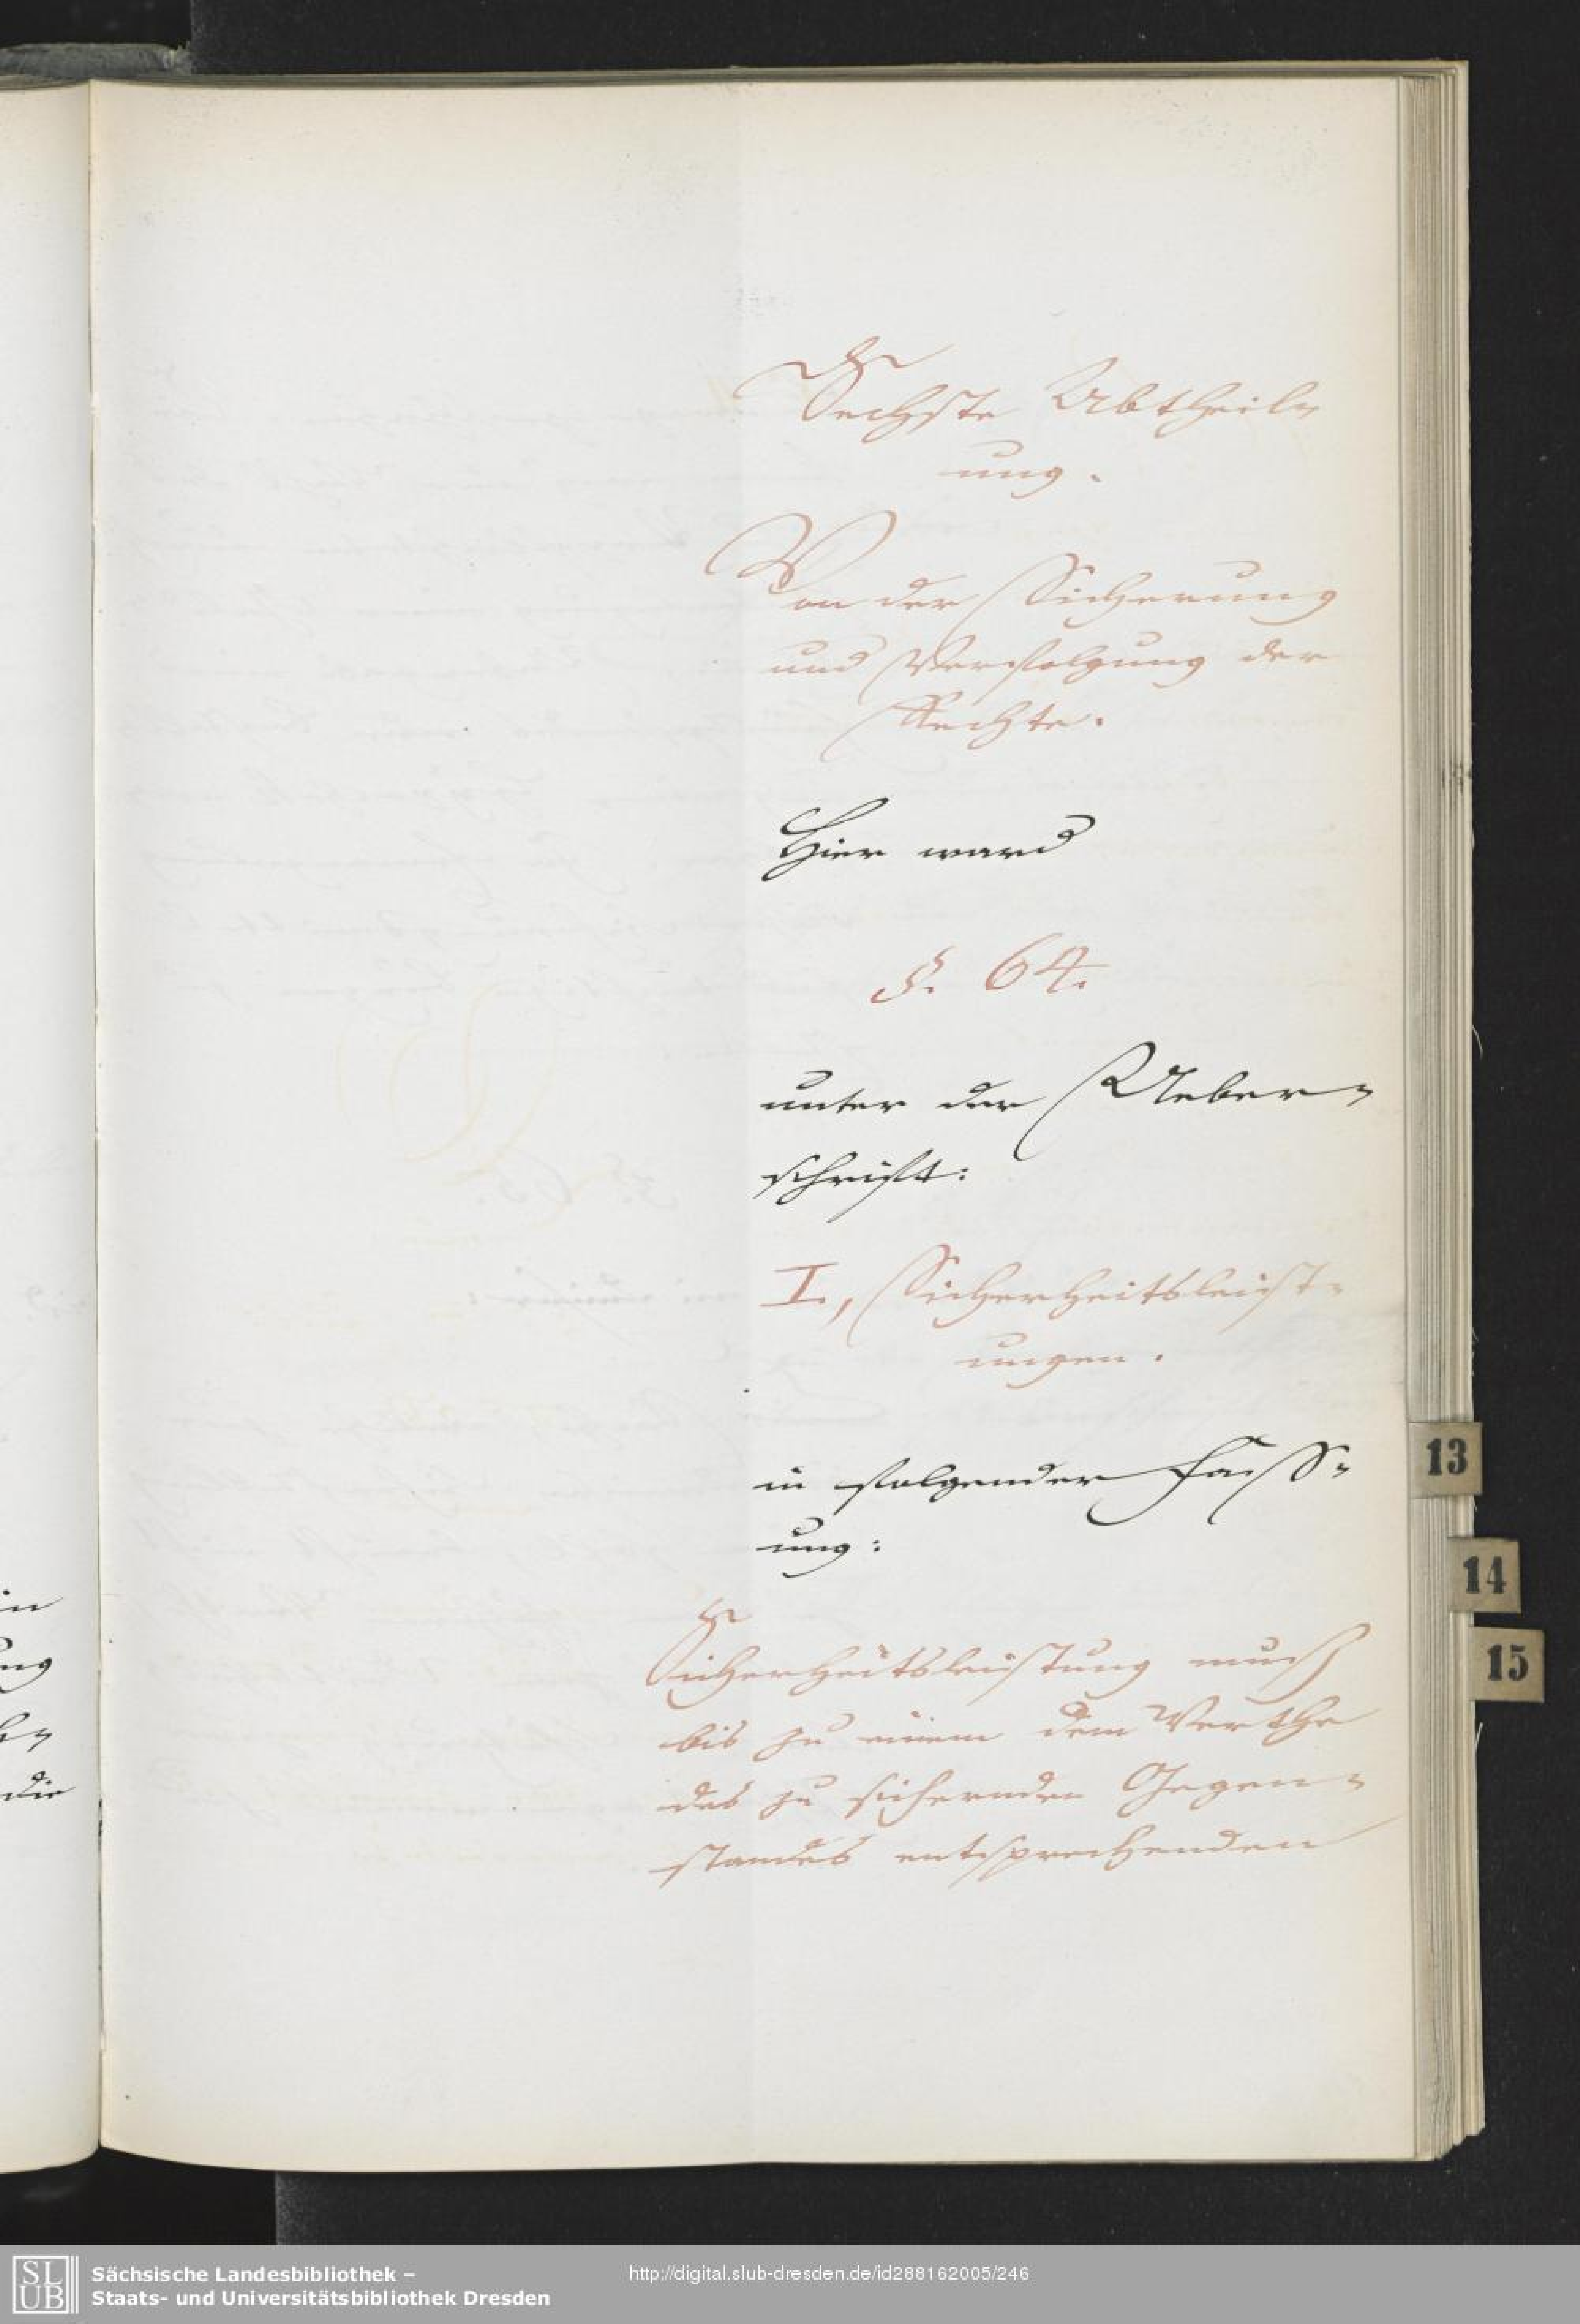 Sechste Abtheil-
ung.
Von der Sicherung
und Verfolgung der
Rechte.
Hier ward
§. 64.
unter der Ueber-
schrift:
I., Sicherheitsleist-
ungen.
in folgender Fass-
ung:
Sicherheitsleistung muß
bis zu einem dem Werthe
des zu sichernden Gegen-
standes entsprechenden
in
ung
die
13
14
15
SLUB
Sächsische Landesbibliothek –
Staats- und Universitätsbibliothek Dresden
http://digital.slub-dresden.de/id288162005/246